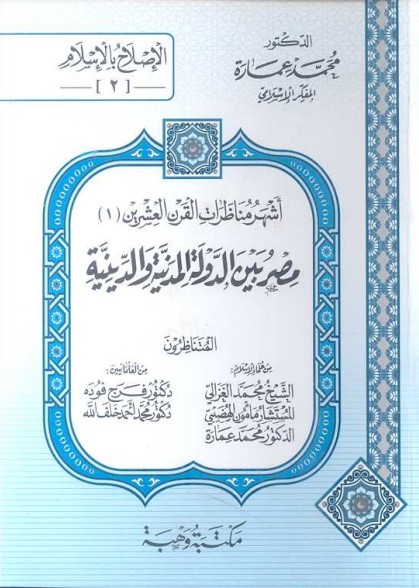 الدكتور
محمد عمارة
المفكر الإسلامي
الإصلاح بالإسلام
[٢]
أشهر مناظرات القرن العشرين (١)
مصر بين الدولة المدنية والدينية
المتناظرون
من علماء الإسلام: من العلمانيين:
الشيخ محمد الغزالي دكتور فرج فوده
المستشار مأمون الهضيبي دكتور محمد أحمد خلف الله
الدكتور محمد عمارة
مكتبة وهبة